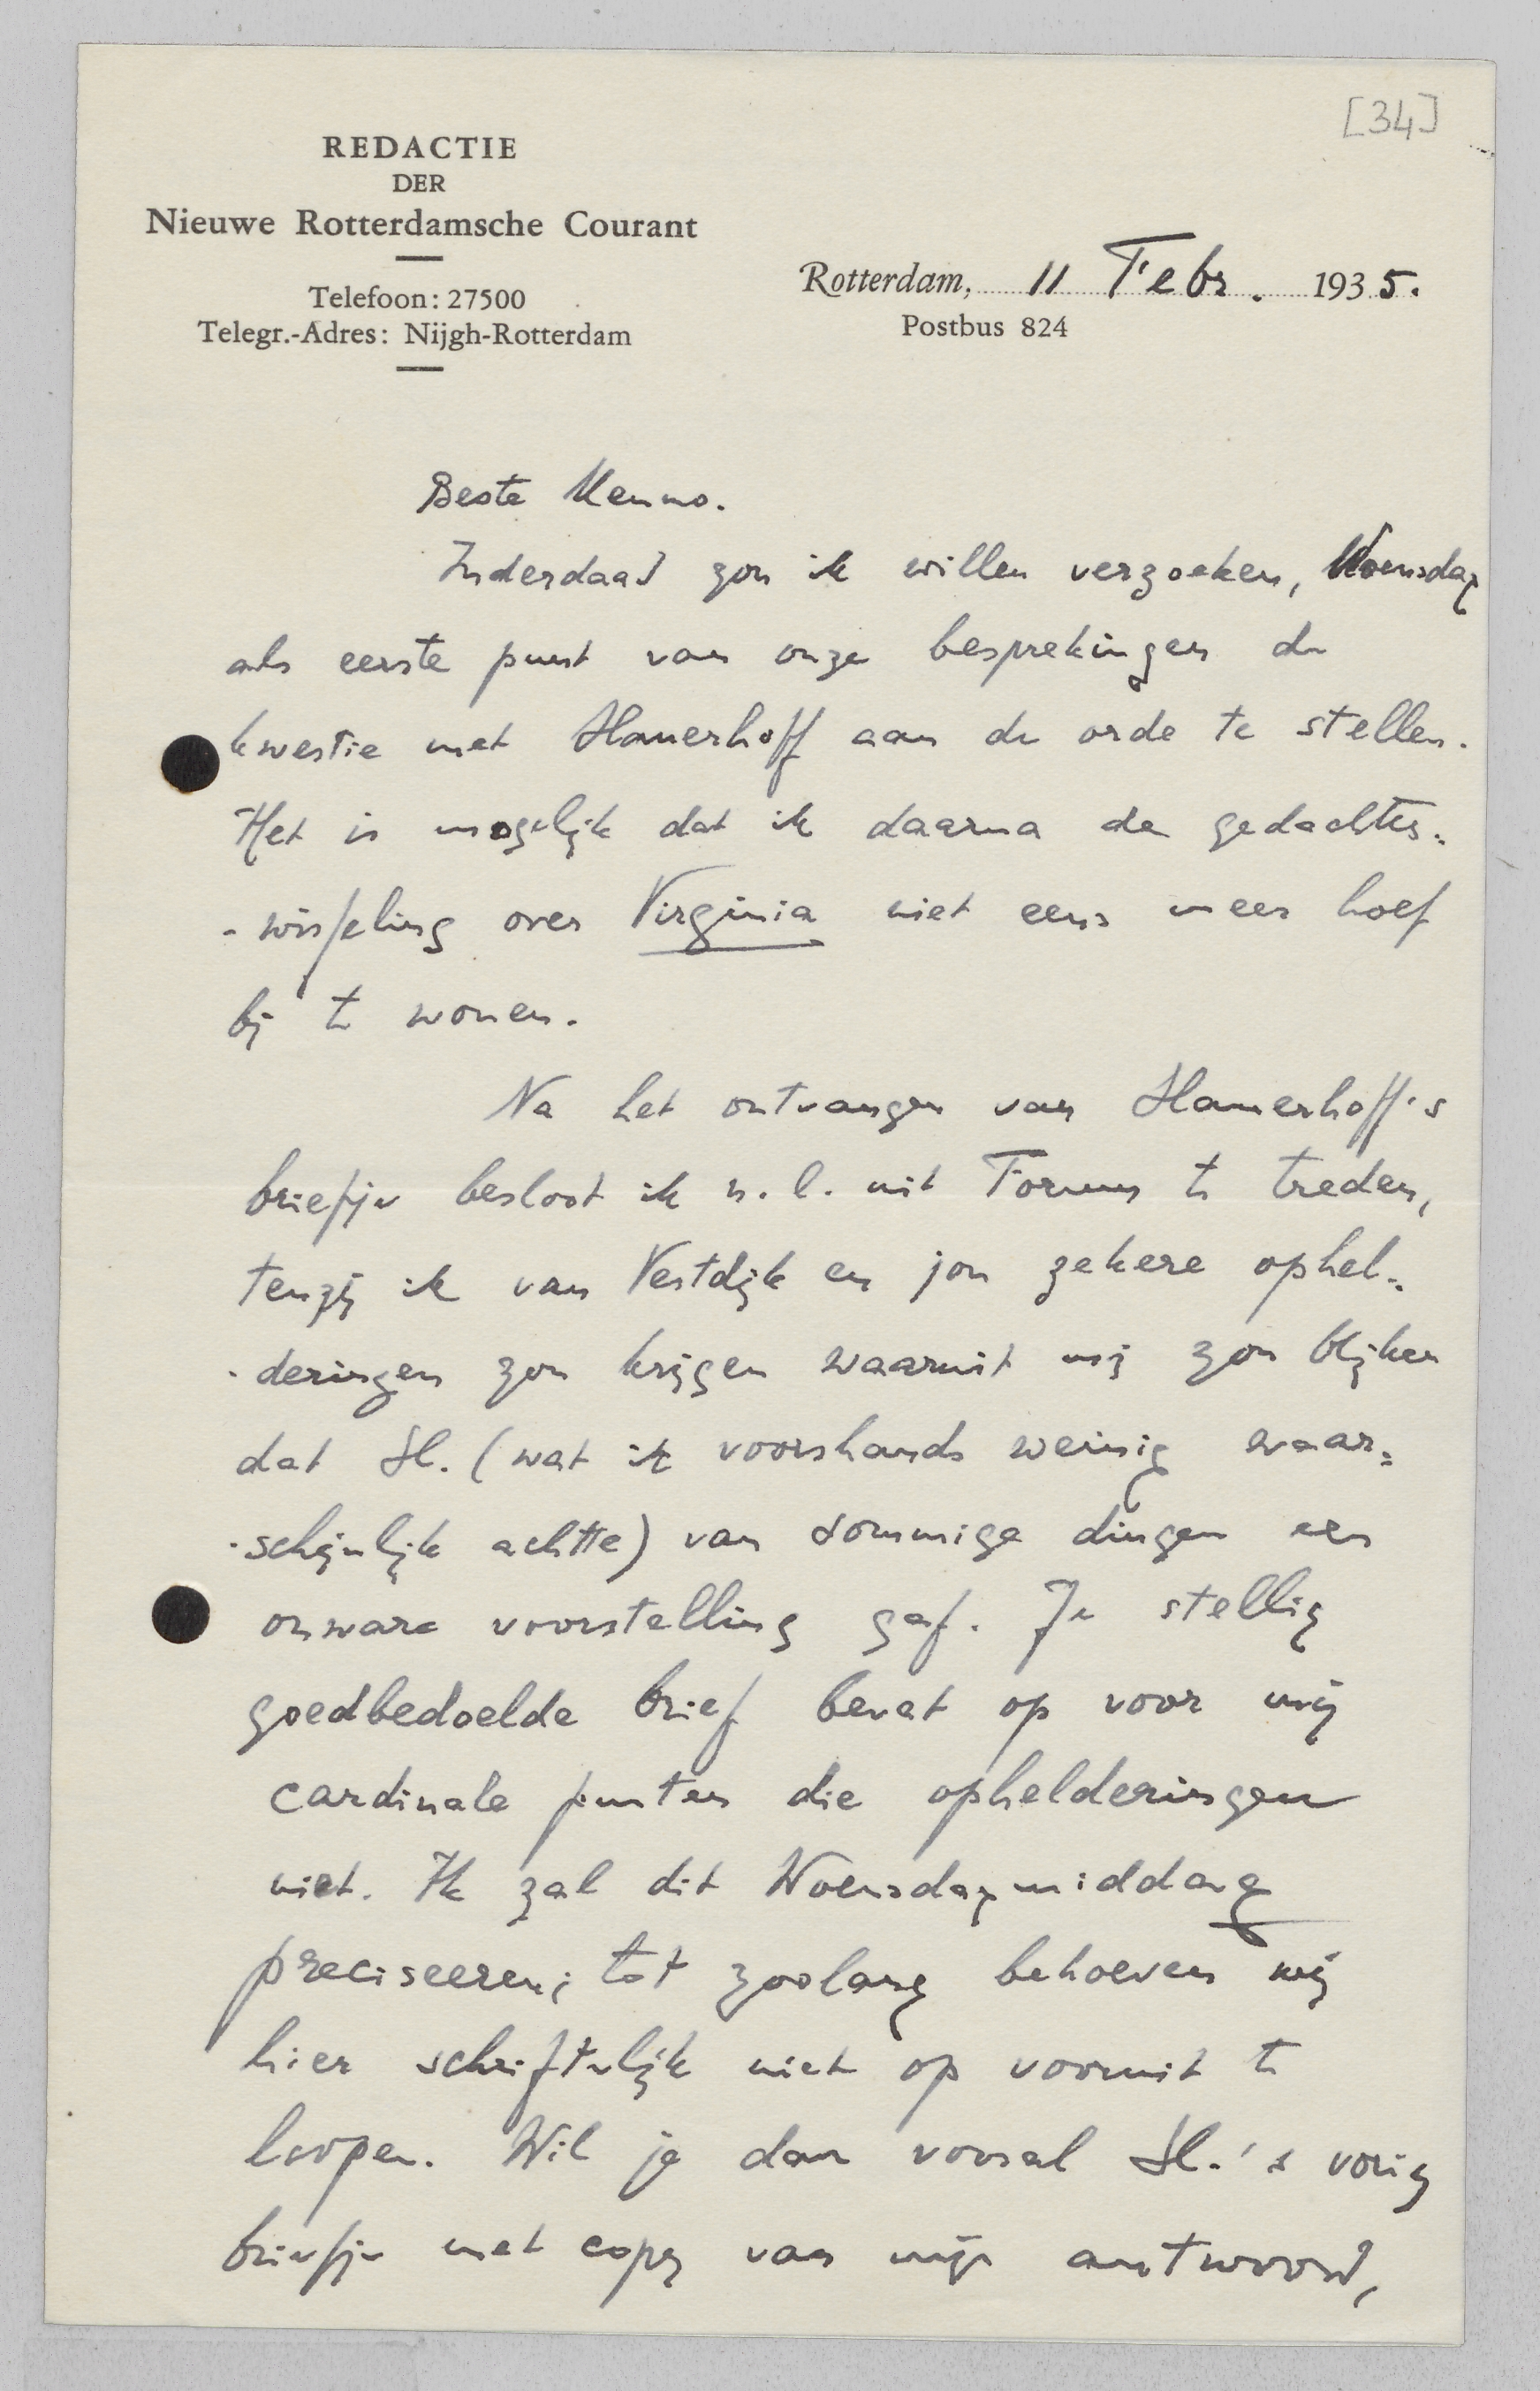 [34]
REDACTIE
DER
Nieuwe Rotterdamsche Courant
Telefoon: 27500
Telegr.-Adres: Nijgh-Rotterdam
Rotterdam, 11 Febr. 1935.
Postbus 824
Beste Menno.
Inderdaad zou ik willen verzoeken, Woensdag
als eerste punt van onze besprekingen de
kwestie met Slauerhoff aan de orde te stellen.
Het is mogelijk dat ik daarna de gedachten=
-wisseling over Virginia niet eens meer hoef
bij te wonen.
Na het ontvangen van Slauerhoff's
briefje besloot ik n.l. uit Forum te treden,
tenzij ik van Vestdijk en jou zekere ophel=
-deringen zou krijgen waaruit mij zou blijken
dat Sl. (wat ik voorshands weinig waar=
-schijnlijk achtte) van sommige dingen een
onware voorstelling gaf. Je stellig
goedbedoelde brief bevat op voor mij
cardinale punten die ophelderingen
niet. Ik zal dit Woensdagmiddag
preciseeren; tot zoolang behoeven wij
hier schriftelijk niet op vooruit te
loopen. Wil je dan vooral Sl.'s vorig
briefje met copy van mijn antwoord,